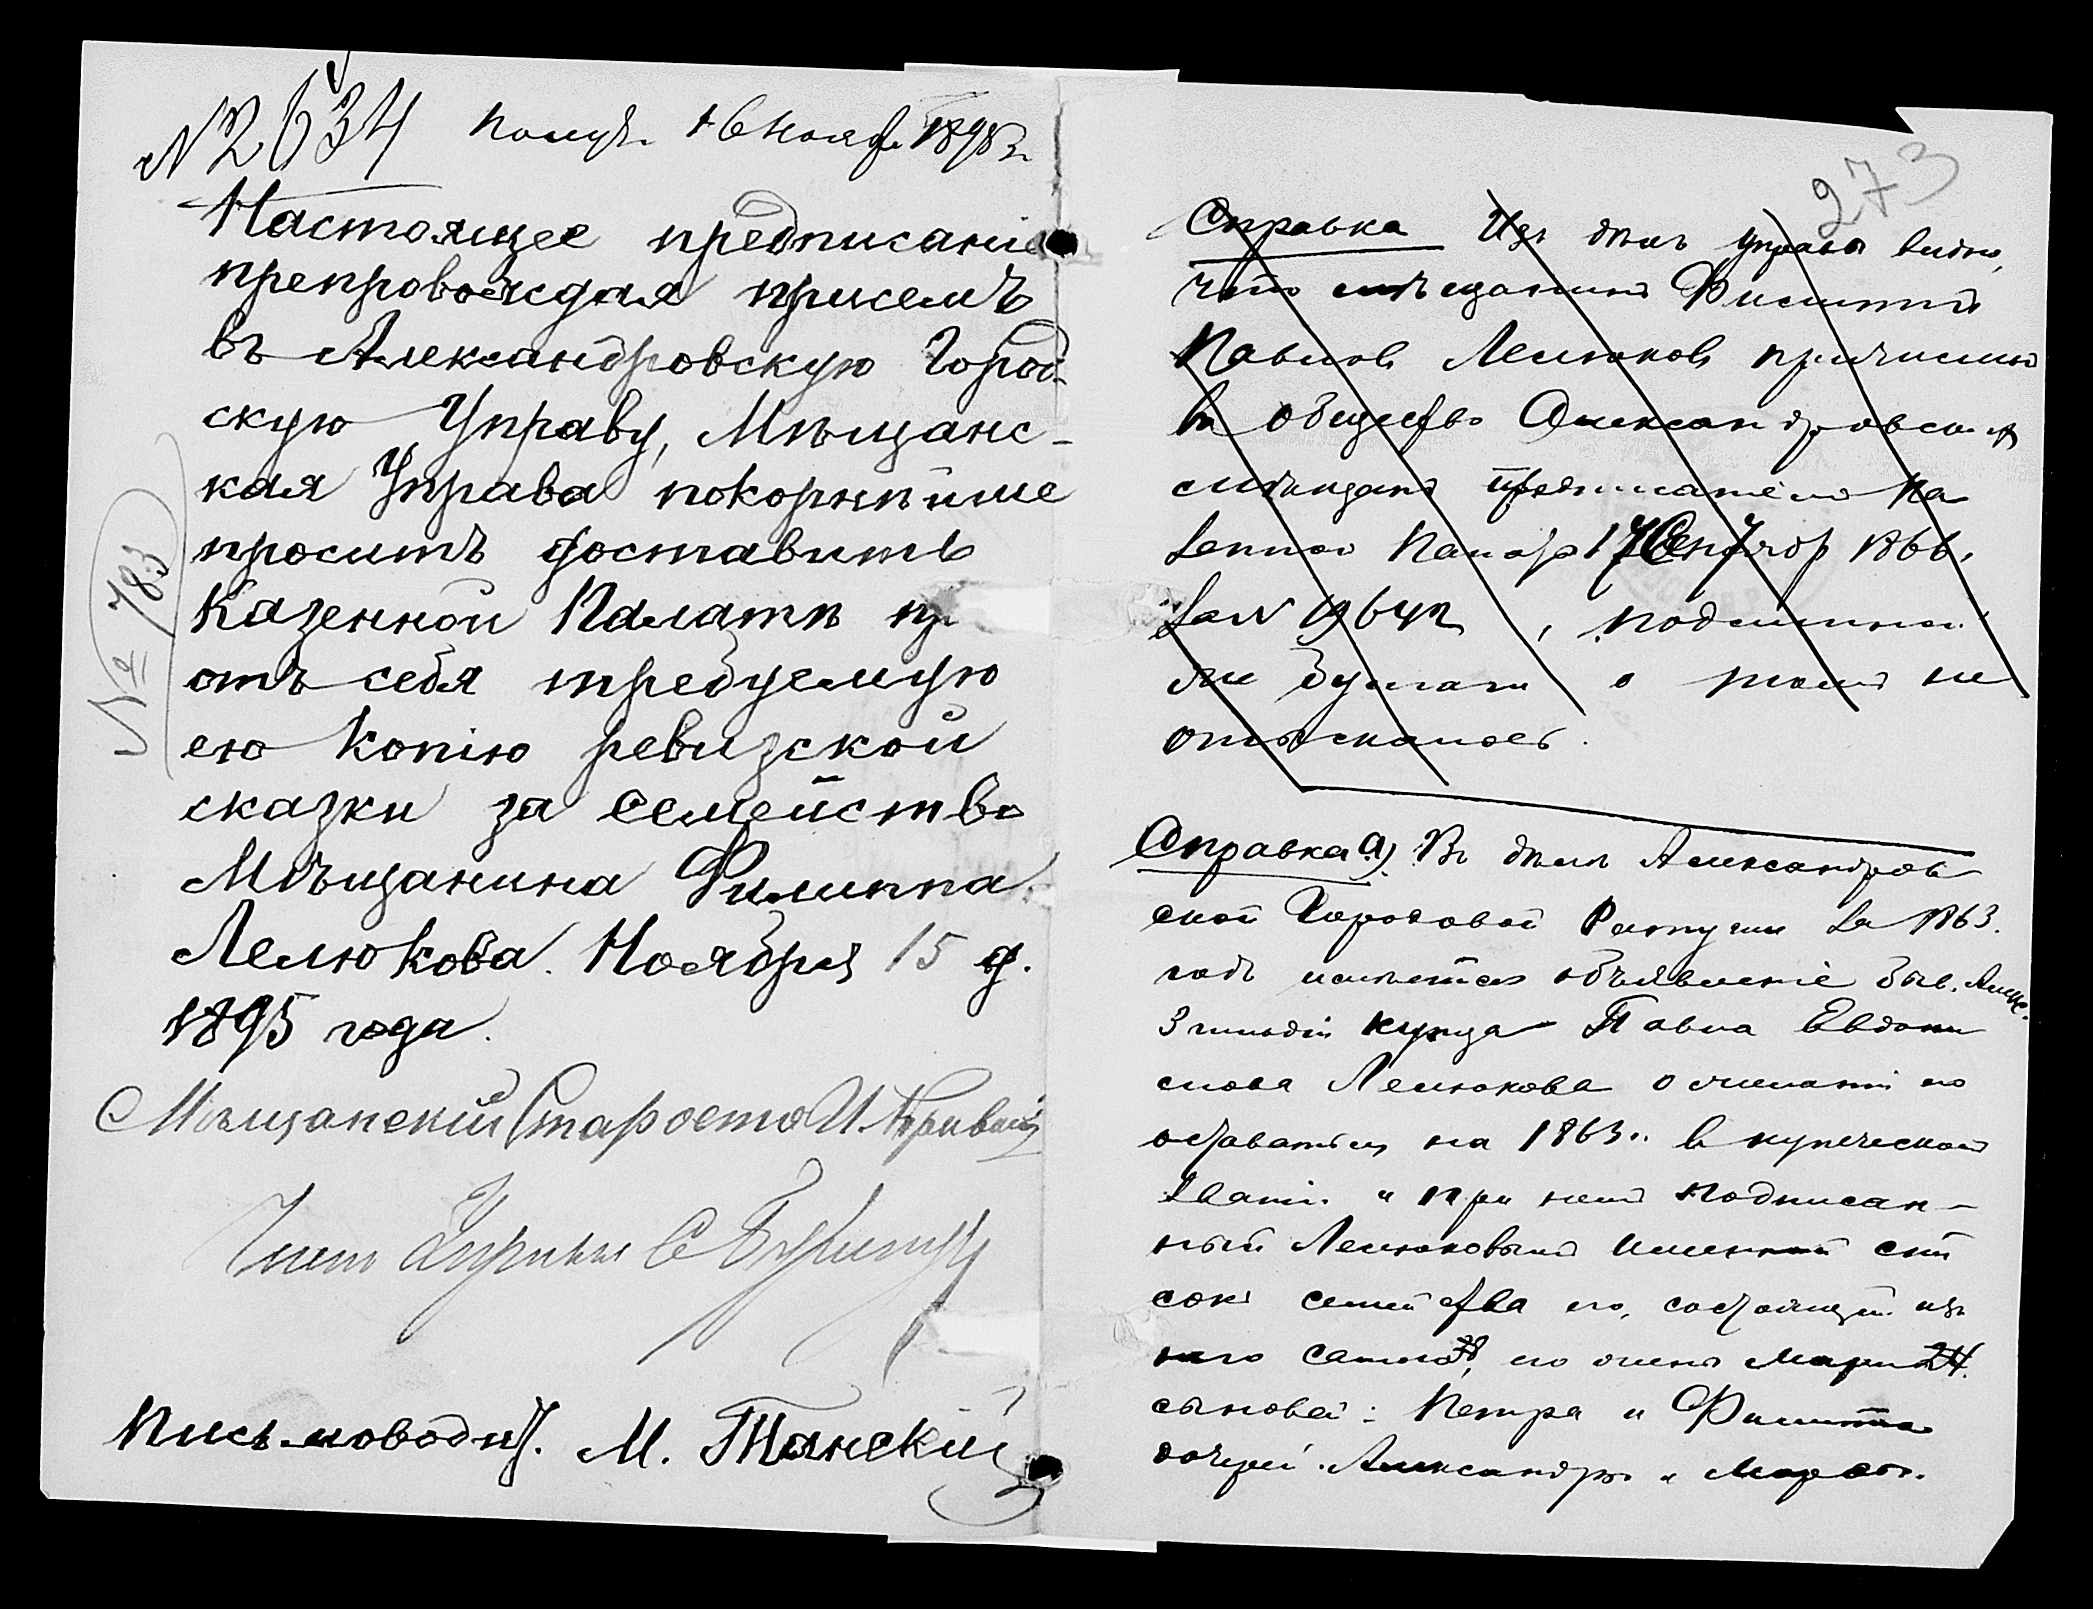 № 2634 получ. 16 Нояб. 1895 г.
Настоящее предписаніе
препровождая присемъ
въ Александровскую Город-
скую Управу, Мѣщанс-
кая Управа покорнѣйше
проситъ доставить
Казенной Палатѣ
отъ себя требуемую
ею копію ревизской
сказки за семейство
Мѣщанина Филиппа
Лелюкова. Ноября 15 д.
1895 года.
Мѣщанскій Староста И.
Член Управы С
Письмоводит. М. Танскій
№ 783
273
Справка Изъ дѣлъ управы видно,
что мѣщанинъ Филиппъ
Павловъ Лелюковъ причисленъ
въ общество Александровскихъ
мѣщанъ предписаніемъ Ка
зенной Палаты 17 Сентябр 1866 г.
за № 19642, подлинной
же бумаги о томъ не
отыскалось.
Справка а). Въ дѣлѣ Александров
ской Городовой Ратуши за 1863
годъ имѣется объявленіе быв. Алекс.
3 гильдіи купца Павла Евдоки
мова Лелюкова о желаніи его
оставаться на 1863 г. въ купеческомъ
званіи и при немъ подписан-
ный Лелюковымъ именной спи
сокъ семейства его, состоящей изъ
него самого 38, его жены Маріи 24.
сыновей: Петра и Филиппа
дочерей: Александры и Марѳы.